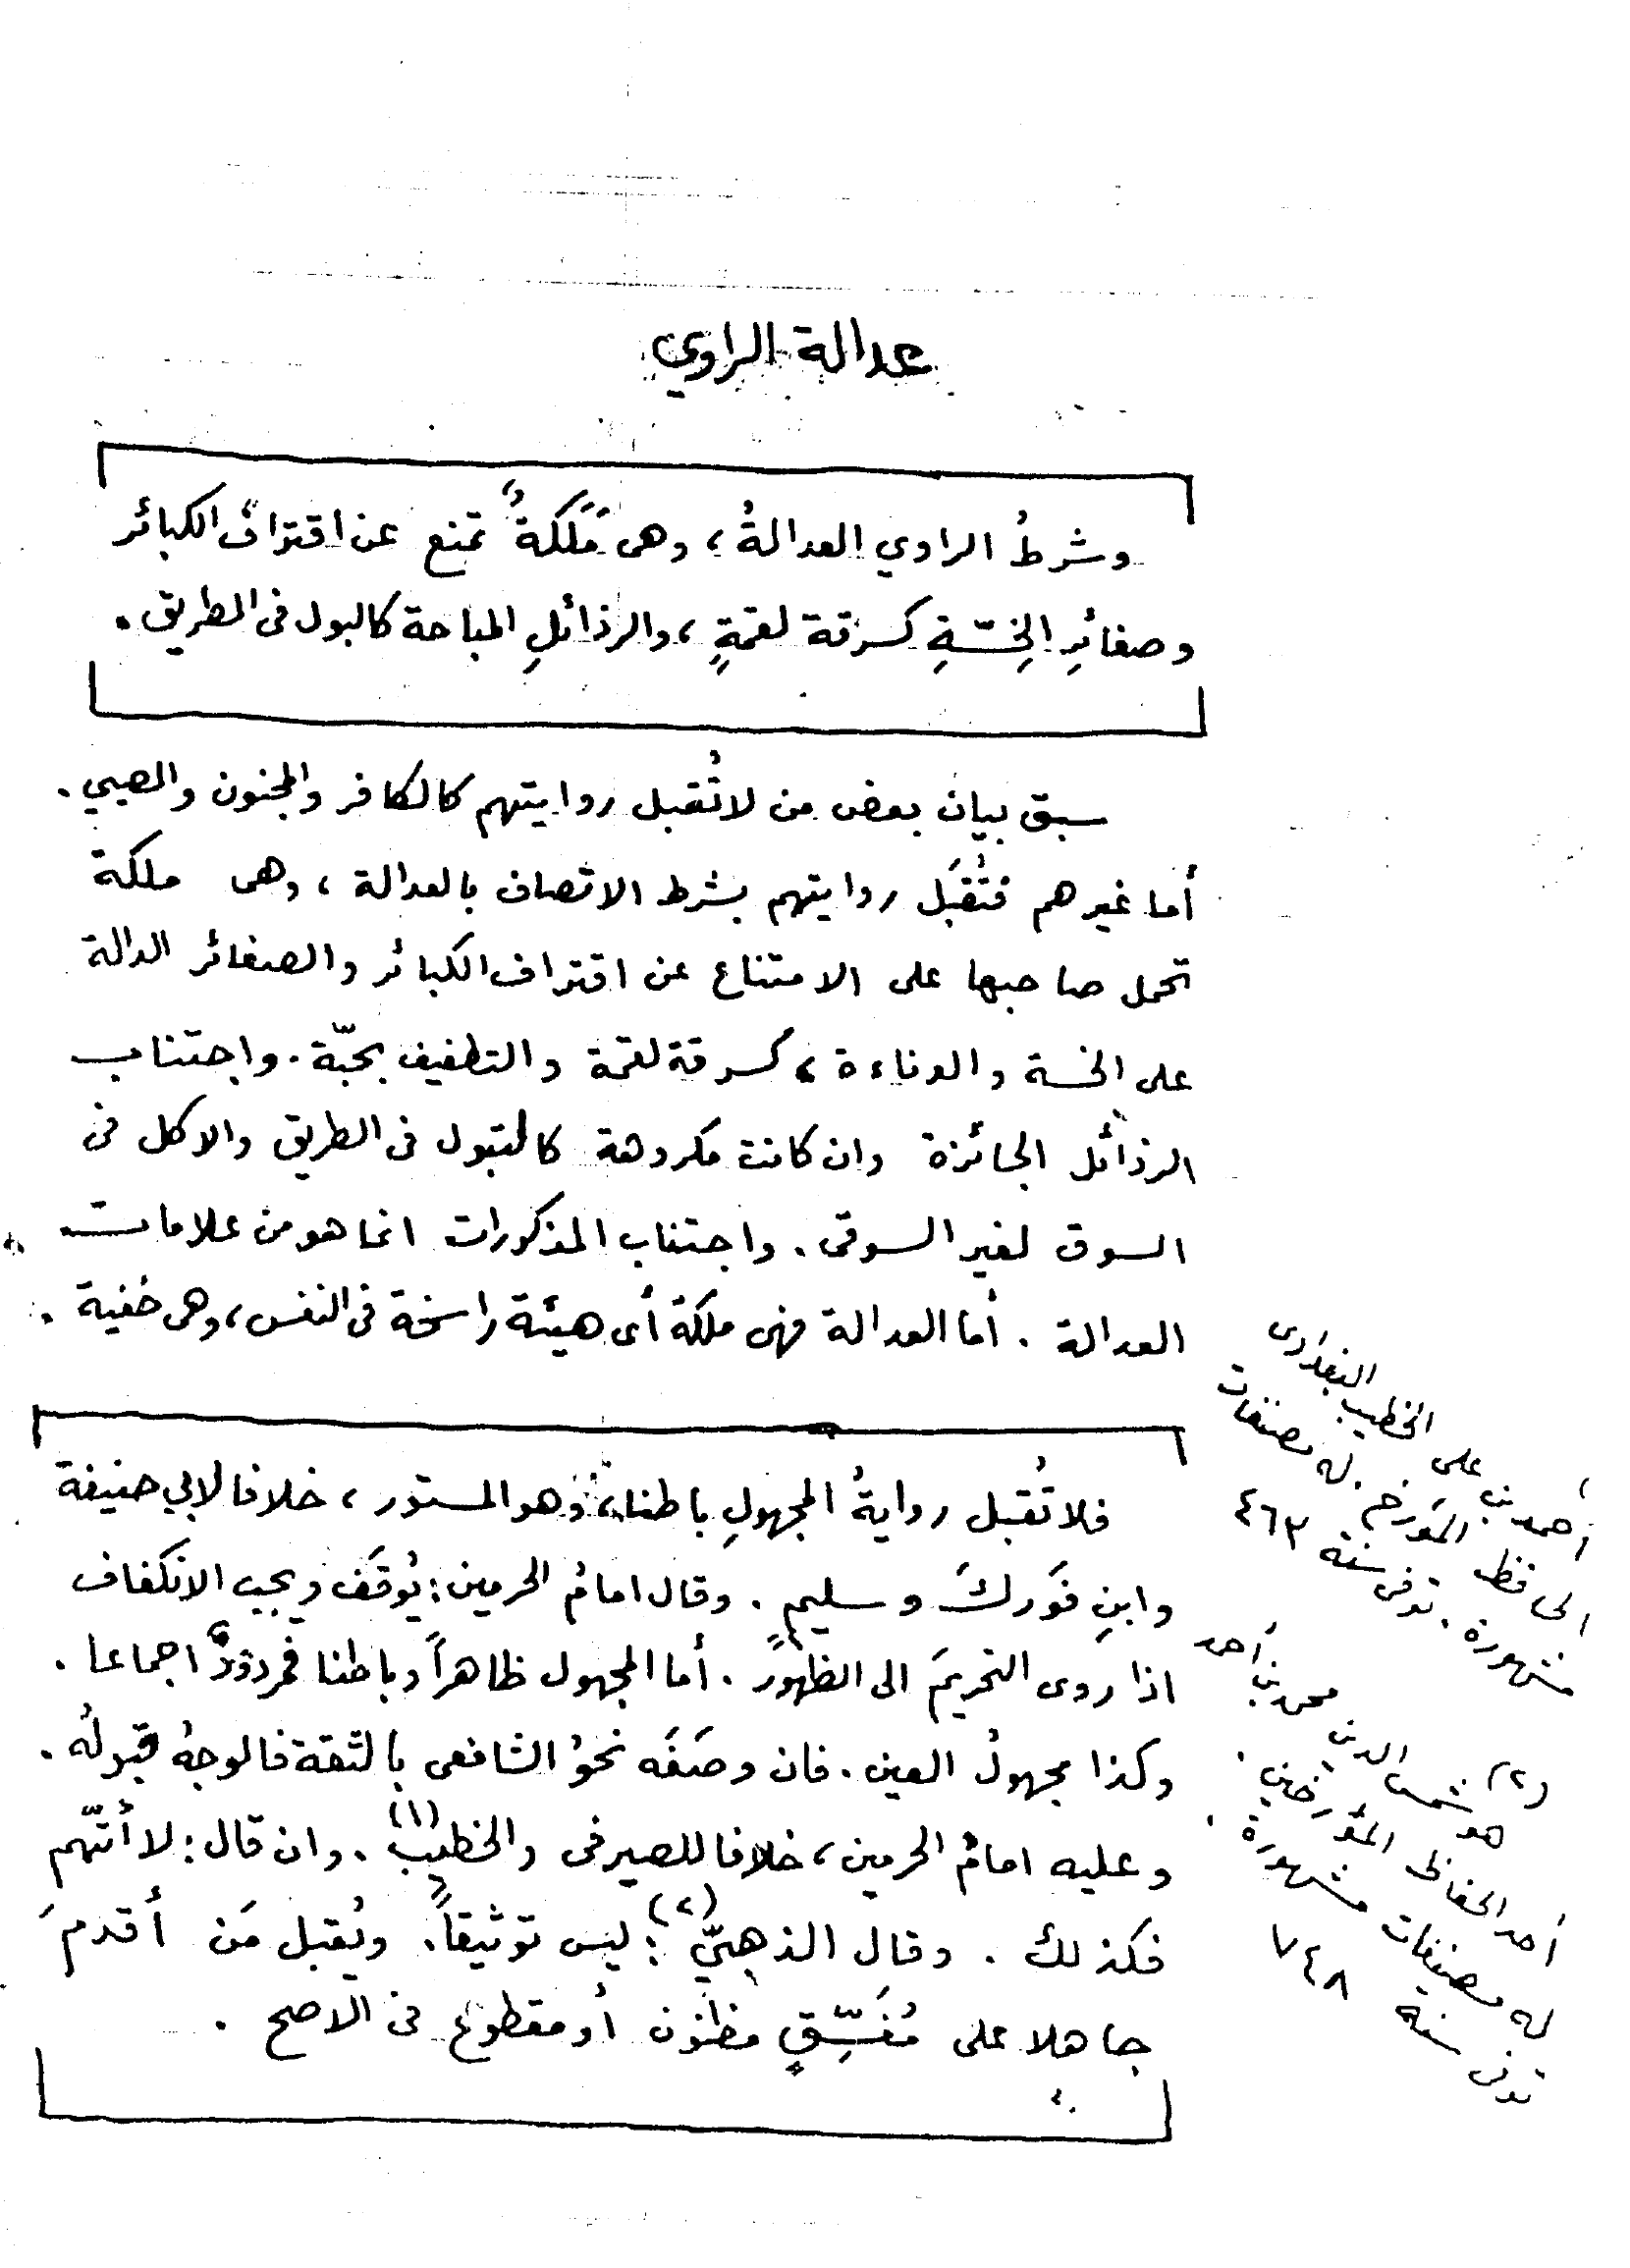 عدالة الراوي
وشرطُ الراوي العدالةُ، وهى مَلَكَةٌ تمنع عن اقترافِ الكبائر
وصغائرِ الخِسّةِ كسرقة لقمةٍ، والرذائلِ المباحة كالبول فى الطريق.
سبق بيان بعض من لا تُقبل روايتهم كالكافر والمجنون والصبي.
أما غيرهم فتُقبَل روايتهم بشرط الاتصاف بالعدالة، وهى ملكة
تحمل صاحبها على الامتناع عن اقتراف الكبائر والصغائر الدالة
على الخسة والدناءة، كسرقة لقمة والتطفيف بحبّة. واجتناب
الرذائل الجائزة وان كانت مكروهة كالتبول فى الطريق والاكل فى
السوق لغير السوقى. واجتناب المذكورات انما هو من علامات
العدالة. أما العدالة فهى ملكة أى هيئة راسخة فى النفس، وهى خفية.
فلا تُقبل روايةُ المجهولِ باطنا، وهو المستور، خلافا لابي حنيفة
وابنِ فَوركَ وسليمٍ. وقال امامُ الحرمين: يُوقَف ويجب الانكفاف
اذا روى التحريمَ الى الظهورِ. أما المجهول ظاهراً وباطنا فمردودٌ اجماعا.
وكذا مجهولُ العين. فان وصَفَه نحوُ الشافعى بالثقة فالوجهُ قبولُه.
وعليه امامُ الحرمين، خلافا للصيرفى والخطيبِ (١). وان قال: لا أتّهم
فكذلك. وقال الذهبيّ (٢): ليس توثيقاً. ويُقبل مَن أقدمَ
جاهلا على مُفَسِّقٍ مظنون أو مقطوع فى الاصح.
أحمد بن على الخطيب البغدادى
الحافظ المؤرخ. له مصنفات
مشهورة. توفى سنة ٤٦٣
(٢) هو شمس الدين محمد بن أحمد
أحد الحفاظ المؤرخين.
له مصنفات مشهورة.
توفى سنة ٧٤٨